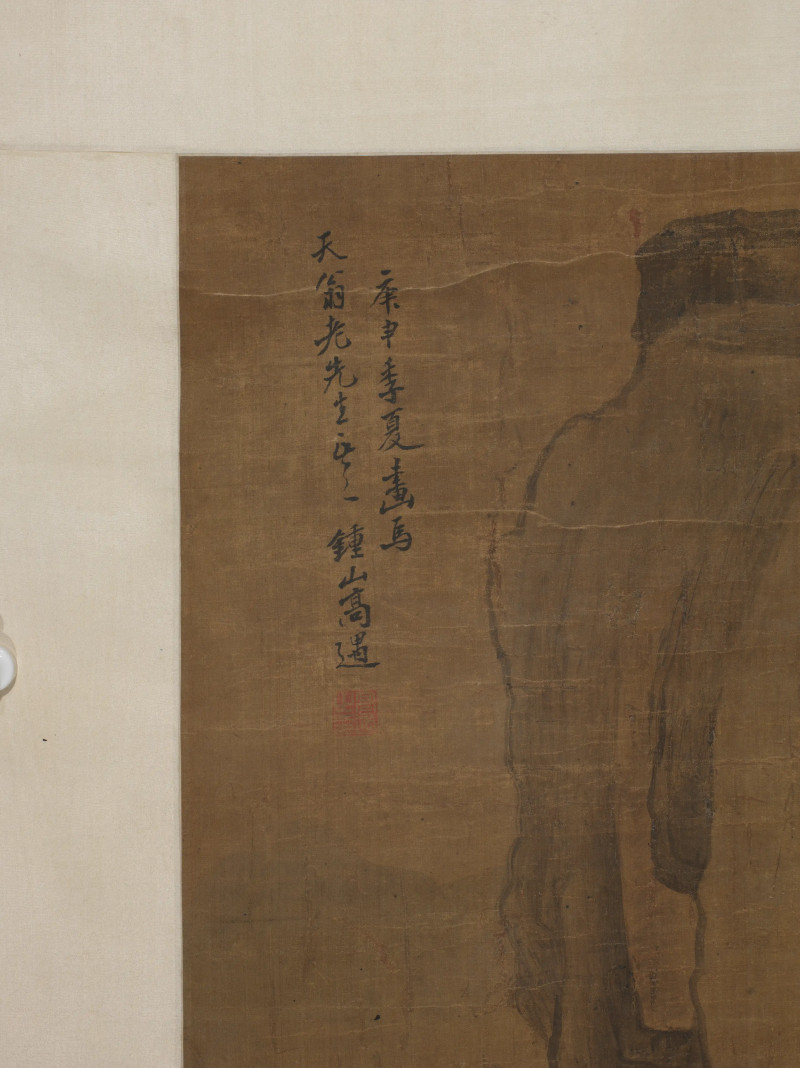 庚申季夏畫為
天翁老先生 鍾山高遇